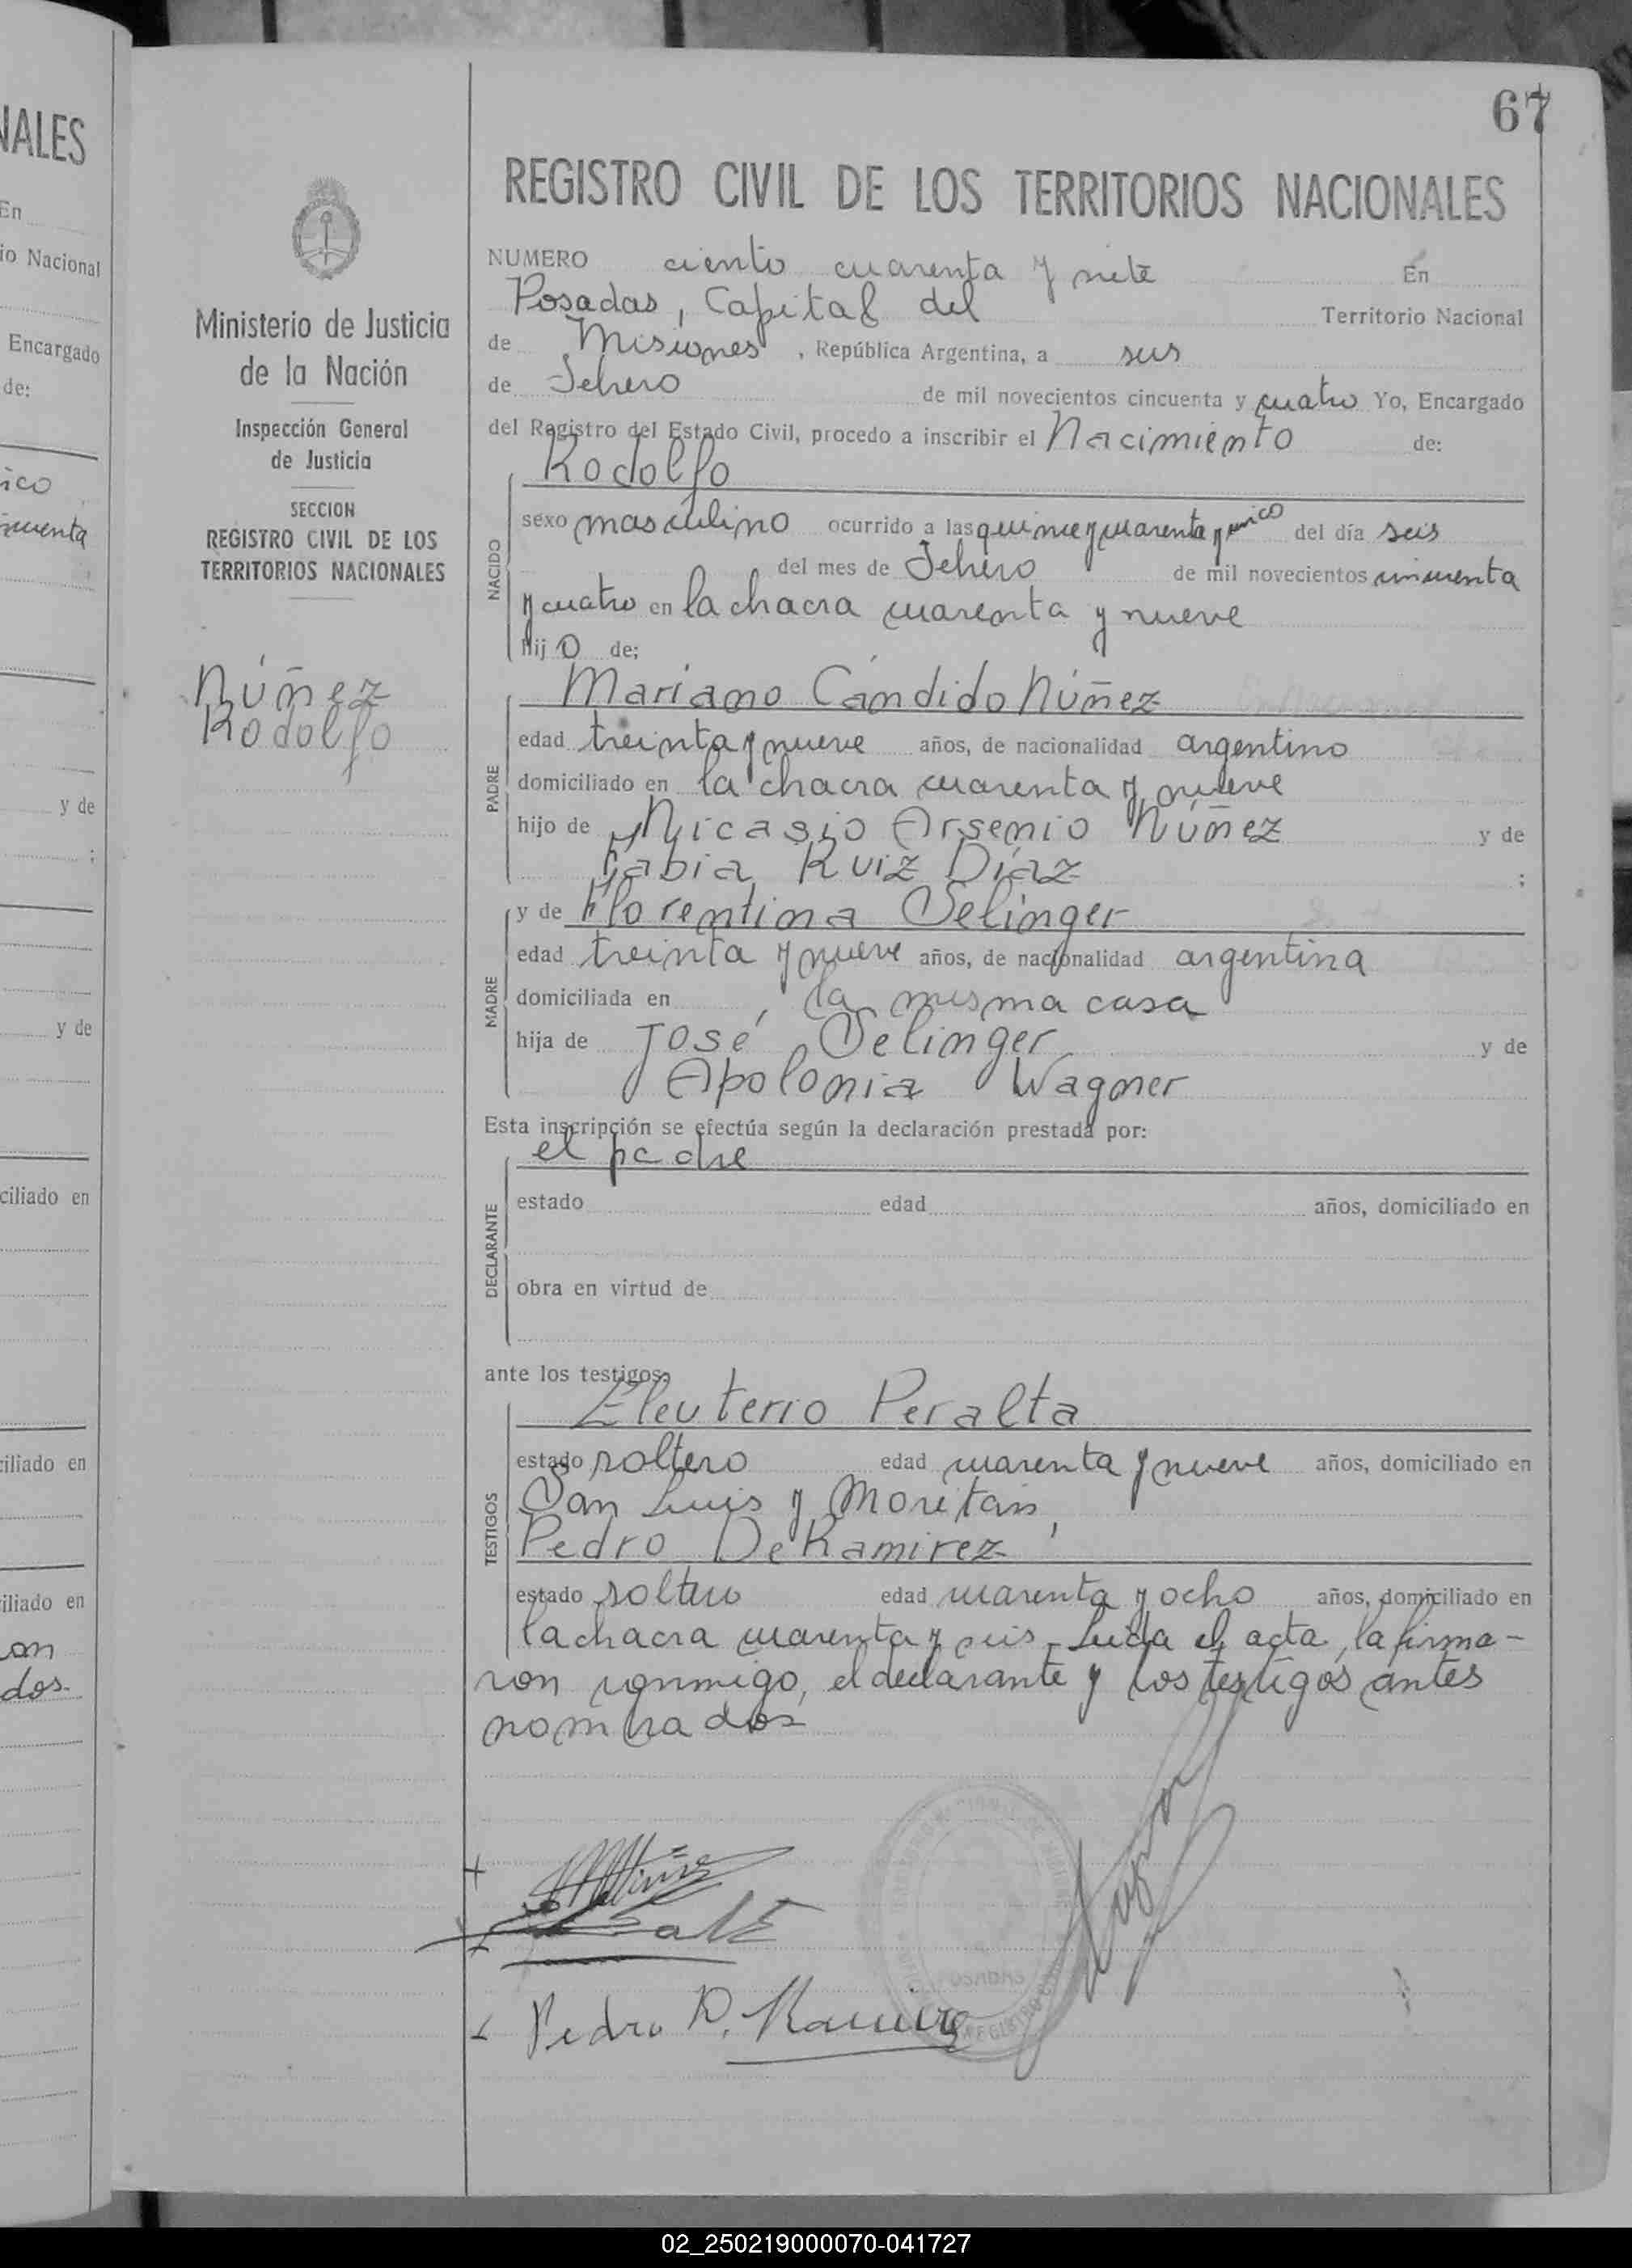 67
NALES
En
io Nacional
Encargado
de:
ico
y de
;
y de
ciliado en
ciliado en
iliado en
on
dos.
Ministerio de Justicia
de la Nación
Inspección General
de Justicia
SECCION
REGISTRO CIVIL DE LOS
TERRITORIOS NACIONALES
Núñez
Rodolfo
REGISTRO CIVIL DE LOS TERRITORIOS NACIONALES
NUMERO ciento cuarenta y siete En
Posadas, Capital del Territorio Nacional
de Misiones, República Argentina, a seis
de Febrero de mil novecientos cincuenta y cuatro Yo, Encargado
del Registro del Estado Civil, procedo a inscribir el Nacimiento de:
Rodolfo
NACIDO
sexo masculino ocurrido a las quince y cuarenta y cinco del día seis
del mes de Febrero de mil novecientos cincuenta
y cuatro en la chacra cuarenta y nueve
hijo de;
Mariano Cándido Núñez
PADRE
edad treinta y nueve años, de nacionalidad argentino
domiciliado en la chacra cuarenta y nueve
hijo de Nicasio Arsenio Núñez y de
Fabia Ruiz Díaz ;
y de Florentina Selinger
MADRE
edad treinta y nueve años, de nacionalidad argentina
domiciliada en la misma casa
hija de José Selinger y de
Apolonia Wagner
Esta inscripción se efectúa según la declaración prestada por:
el padre
DECLARANTE
estado edad años, domiciliado en
obra en virtud de
ante los testigos:
Eleuterio Peralta
TESTIGOS
estado soltero edad cuarenta y nueve años, domiciliado en
San Luis y Moritan,
Pedro De Ramirez
estado soltero edad cuarenta y ocho años, domiciliado en
la chacra cuarenta y seis. Leída el acta, la firma-
ron conmigo, el declarante y los testigos antes
nombrados
Pedro D. Ramirez
POSADAS
02_250219000070-041727